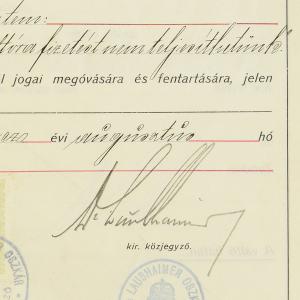 tem:
fizetést nem teljesíthetünk"
l jogai megóvására és fentartására, jelen
évi augusztus hó
Dr Laubhaimer
kir. közjegyző.
LAUBHAIMER OSZK
OSZKÁR